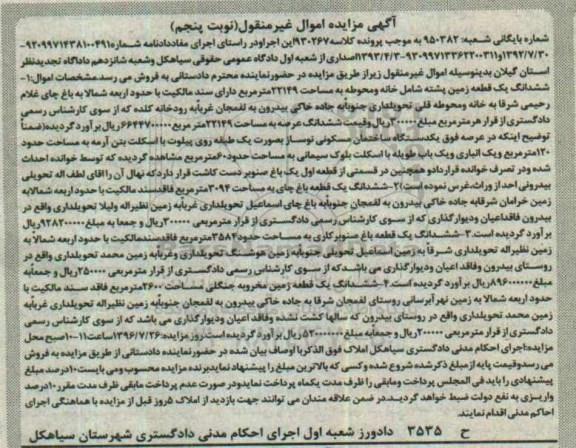 آگهی مزایده اموال غیرمنقول(نوبت پنجم)
شماره بایگانی شعبه: ۹۵۰۳۸۲ به موجب پرونده کلاسه ۹۳۰۲۶۷ این اجرا و در راستای اجرای مفاد دادنامه شماره ۹۲۰۹۹۷۱۴۳۸۱۰۰۴۹۱-
۱۳۹۲/۷/۳۰ و ۹۳۰۹۹۷۱۳۳۶۲۰۰۳۱۱-۱۳۹۳/۴/۳ صادری از شعبه اول دادگاه عمومی حقوقی سیاهکل وشعبه شانزدهم دادگاه تجدیدنظر
استان گیلان بدینوسیله اموال غیرمنقول زیر از طریق مزایده در حضور نماینده محترم دادستانی به فروش می رسد.مشخصات اموال:۱-
ششدانگ یک قطعه زمین پشته شامل خانه ومحوطه به مساحت ۲۲۱۴۹مترمربع دارای سند مالکیت با حدود اربعه شمالا به باغ چای غلام
رحیمی شرقا به خانه ومحوطه قلی تحویلداری جنوبابه جاده خاکی بیدرون به لفمجان غربابه رودخانه کلده که از سوی کارشناس رسمی
دادگستری از قرار هرمترمربع مبلغ ۳۰۰۰۰۰ریال وقیمت ششدانگ عرصه به مساحت ۲۲۱۴۹متر مربع ۶۶۴۴۷۰۰۰۰۰ریال برآورد گردیده(ضمنا
توضیح اینکه در عرصه فوق یکدستگاه ساختمان مسکونی نوساز بصورت یک طبقه روی پیلوت با اسکلت بتن آرمه به مساحت حدود
۱۲۰مترمربع ویک انباری ویک باب طویله با اسکلت بلوک سیمانی به مساحت حدود۶۰مترمربع مشاهده گردیده که توسط خوانده احداث
شده ودر تصرف خوانده قراردادو همچنین در قسمتی از قطعه اول یک باغ صنوبر دست کاشت قرار دارد که نهال آن را آقای لطف اله تحویلی
بیدرونی احد از وراث،غرس نموده است)۲-ششدانگ یک قطعه باغ چای به مساحت ۳۰۹۴مترمربع فاقدسند مالکیت با حدود اربعه شمالا به
زمین خرامان شرقابه جاده خاکی بیدرون به لفمجان جنوبابه باغ چای اسماعیل تحویلداری غربابه زمین نظیراله ولیلا تحویلداری واقع در
بیدرون فاقداعیان ودیوارگذاری که از سوی کارشناس رسمی دادگستری از قرار مترمربعی ۳۰۰۰۰۰ریال و جمعا به مبلغ ۹۲۸۲۰۰۰۰۰ریال
بر آورد گردیده است.۳-ششدانگ یک قطعه باغ صنوبرکاری به مساحت حدود ۳۵۸۴مترمربع فاقدسندمالکیت با حدود اربعه شمالا به
زمین نظیراله تحویلداری شرقا به زمین اسماعیل تحویلی جنوبابه زمین هوشنگ تحویلداری وغربابه زمین محمد تحویلداری واقع در
روستای بیدرون وفاقد اعیان ودیوارگذاری می باشدکه از سوی کارشناس رسمی دادگستری از قرار مترمربعی ۲۵۰۰۰۰ریال و جمعابه
مبلغ۸۹۶۰۰۰۰۰۰ریال بر آورد گردیده است.۴-ششدانگ یک قطعه زمین مخروبه جنگلی مساحت ۲۶۰۰مترمربع فاقد سند مالکیت با
حدود اربعه شمالا به زمین نهرآبرسانی روستای لفمجان شرقا به جاده خاکی بیدرون به لفمجان جنوبابه زمین نظیراله تحویلداری غربابه
زمین محمد تحویلداری واقع در روستای بیدرون که سالها کشت نشده وفاقد اعیان ودیوارگذاری می باشد که از سوی کارشناس رسمی
دادگستری از قرار مترمربعی ۲۰۰۰۰۰ریال و جمعابه مبلغ ۵۲۰۰۰۰۰۰۰ریال برآورد گردیده است.روز مزایده:۱۳۹۶/۷/۲۶ساعت۱۱-۱۰صبح محل
مزایده:اجرای احکام مدنی دادگستری سیاهکل املاک فوق الذکربا اوصاف بیان شده در حضور نماینده دادستانی از طریق مزایده به فروش
می رسدوقیمت پایه از مبلغ ذکرشده شروع شده وکسی که بالاترین مبلغ را پیشنهاد نمایدبرنده مزایده محسوب ومی بایست۱۰درصد مبلغ
پیشنهادی را باید فی المجلس پرداخت ومابقی را ظرف مدت یکماه پرداخت نمایدودر صورت عدم پرداخت مابقی ظرف مدت مقرر۱۰درصد
واریزی به نفع دولت ضبط خواهد گردید.در ضمن علاقه مندان می توانند جهت بازدید از املاک ۵روز قبل از مزایده با هماهنگی اجرای
احکام مدنی اقدام نمایند.
ح ۳۵۳۵ دادورز شعبه اول اجرای احکام مدنی دادگستری شهرستان سیاهکل